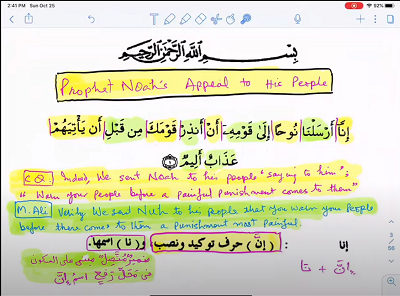 2:41 PM Sun Oct 25
92%
بِسْمِ اللَّهِ الرَّحْمَٰنِ الرَّحِيمِ
Prophet Noah's Appeal to His People
إِنَّا أَرْسَلْنَا نُوحًا إِلَىٰ قَوْمِهِ أَنْ أَنذِرْ قَوْمَكَ مِن قَبْلِ أَن يَأْتِيَهُمْ
عَذَابٌ أَلِيمٌ ١
C.Q: Indeed, We sent Noah to his people "saying to him":
"Warn your People before a painful Punishment comes to them"
M. Ali Verily We Sent Nuh to his people that you warn your People
before there comes to them a punishment most Painful.
إنا : (إِنَّ) حرف توكيد ونصب و(نا) اسمها.
ضمير مُتَّصِل مبني على السكون
في مَحَلِّ رَفْعٍ اسم إنَّ
إنَّ + نا
3
56